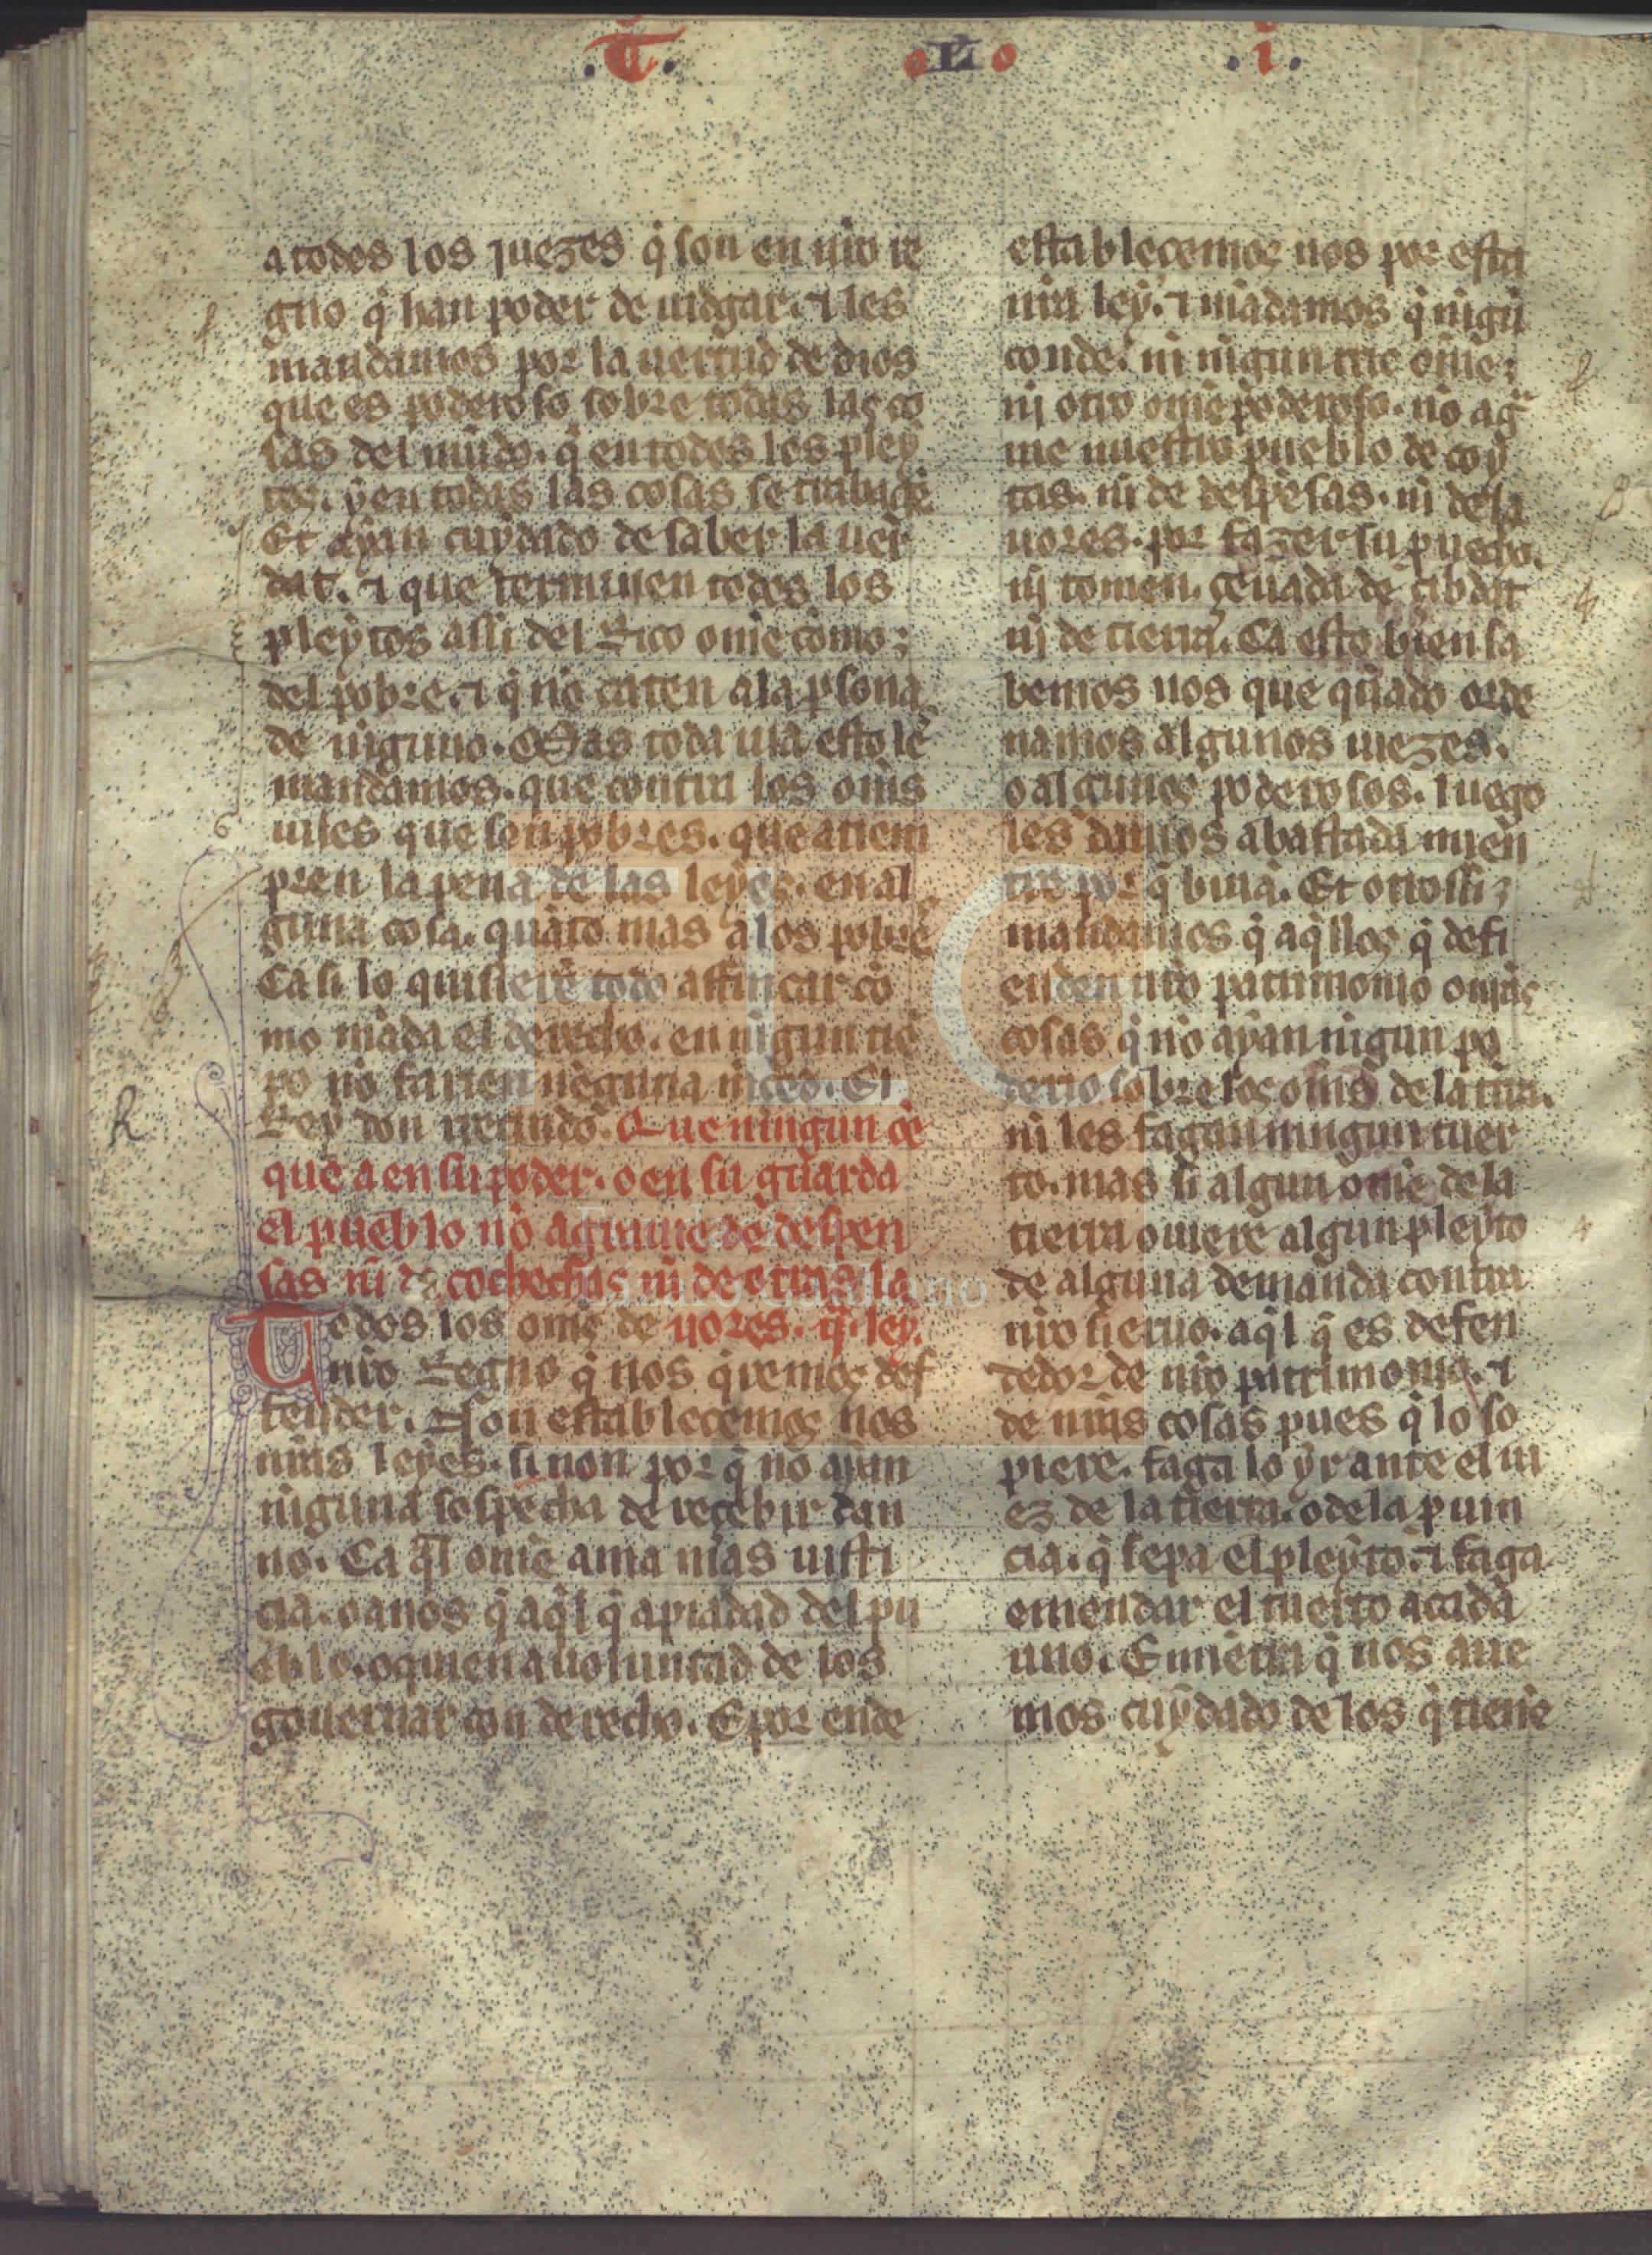 .T. oLo .i.
a todos los juezes q̃ son en nr̃o re
gno q̃ han poder de iudgar. ⁊ les
mandamos por la uertud de dios
que es poderoso sobre todas las co
sas del mũdo. q̃ en todos los pley
tos. ẏ en todas las cosas se trabaiẽ
Et ayan cuydado de saber la uer
dat. ⁊ que terminen todos los
pleytos assi del Rico om̃e como
del pobre. ⁊ q̃ nõ caten a la p̃sona
de niguno. Mas toda uia esto les
mandamos. que contra los om̃s
uiles que son pobres. que atiem
pren la pena de las leyes. en al
guna cosa. quãto mas a los pobres
Ca si lo quisierẽ todo affincar co
mo mãda el derecho. en nigun tiẽ
po nõ farien neguna m̃ced. El
Rey don
Que ningun
que a en su poder. o en su guarda
el pueblo nõ agrauie de despen
sas ni de cochechas ni de otras la
uores. ley.
Todos los om̃s de
nr̃o Regno q̃ nos q̃remos def
fender. Non establecemos nos
nr̃as leyes. si non por q̃ nõ ayan
niguna sospecha de recebir dan
no. Ca q̃l om̃e ama mas iusti
cia. o a nos q̃ aq̃l q̃ a piadad del pu
eblo. o quien a uoluntad de los
gouernar con derecho. E por ende
establecemos nos por esta
nr̃a ley. ⁊ mãdamos q̃ nigũ
conde. ni nigun ric om̃e
nj otro om̃e poderoso. nõ ag̃
uie nuestro pueblo de coy
tas. ni de despẽsas. ni de la
uores. por fazer su puecho.
nj tomen ceuada de cibdat
nj de tierra. Ca esto bien sa
bemos nos que quãdo orde
namos algunos iuezes.
o algunos poderosos. luego
les damos abastada mjen
tre por q̃ biuã. Et otrossi
mandamos q̃ aq̃llos q̃ defi
enden nr̃o patrimonio o nr̃as
cosas q̃ nõ ayan nigun po
derio sobre los om̃s de la tr̃ra.
ni les fagan ningun tuer
to. mas si algun om̃e de la
tierra ouiere algun pleyto
de alguna demanda contra
nr̃o sieruo. aq̃l q̃ es defen
dedor de nr̃o patrimonio. ⁊
de nr̃as cosas pues q̃ lo so
piere. faga lo yr ante el iu
ez de la tierra. o de la puin
cia. q̃ sepa el pleyto. ⁊ faga
emendar el tuerto a cada
uno. E mietra q̃ nos aue
mos cuydado de los q̃ tiene
R
FLG